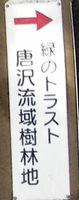 緑のトラスト
唐沢流域樹林地